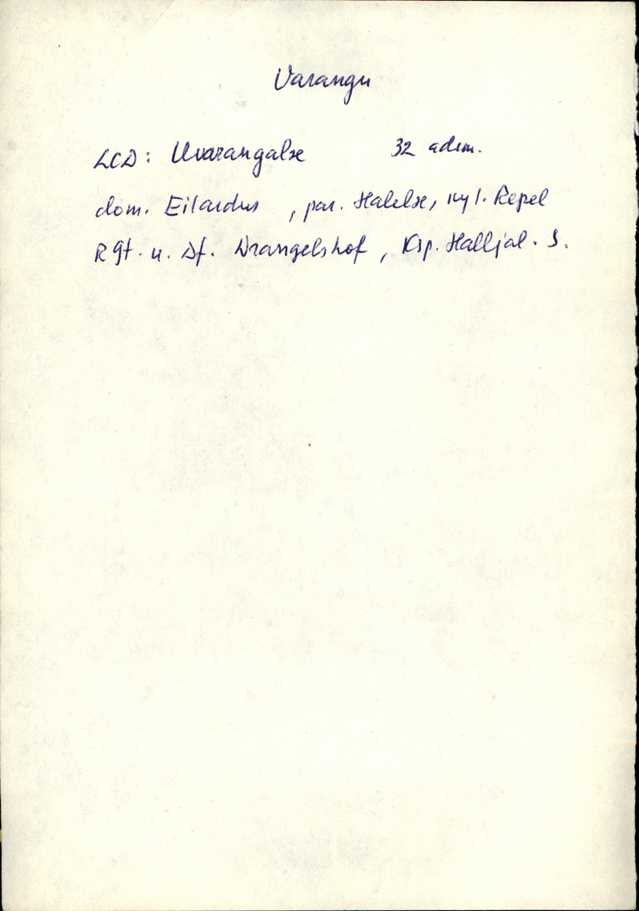 Varangu
LCD: Uvarangalæ 32 adm.
dom. Eilardus, par. Halelæ, kyl. Repel
Rgt. u. Df. Wrangelshof, Ksp. Halljal. S.